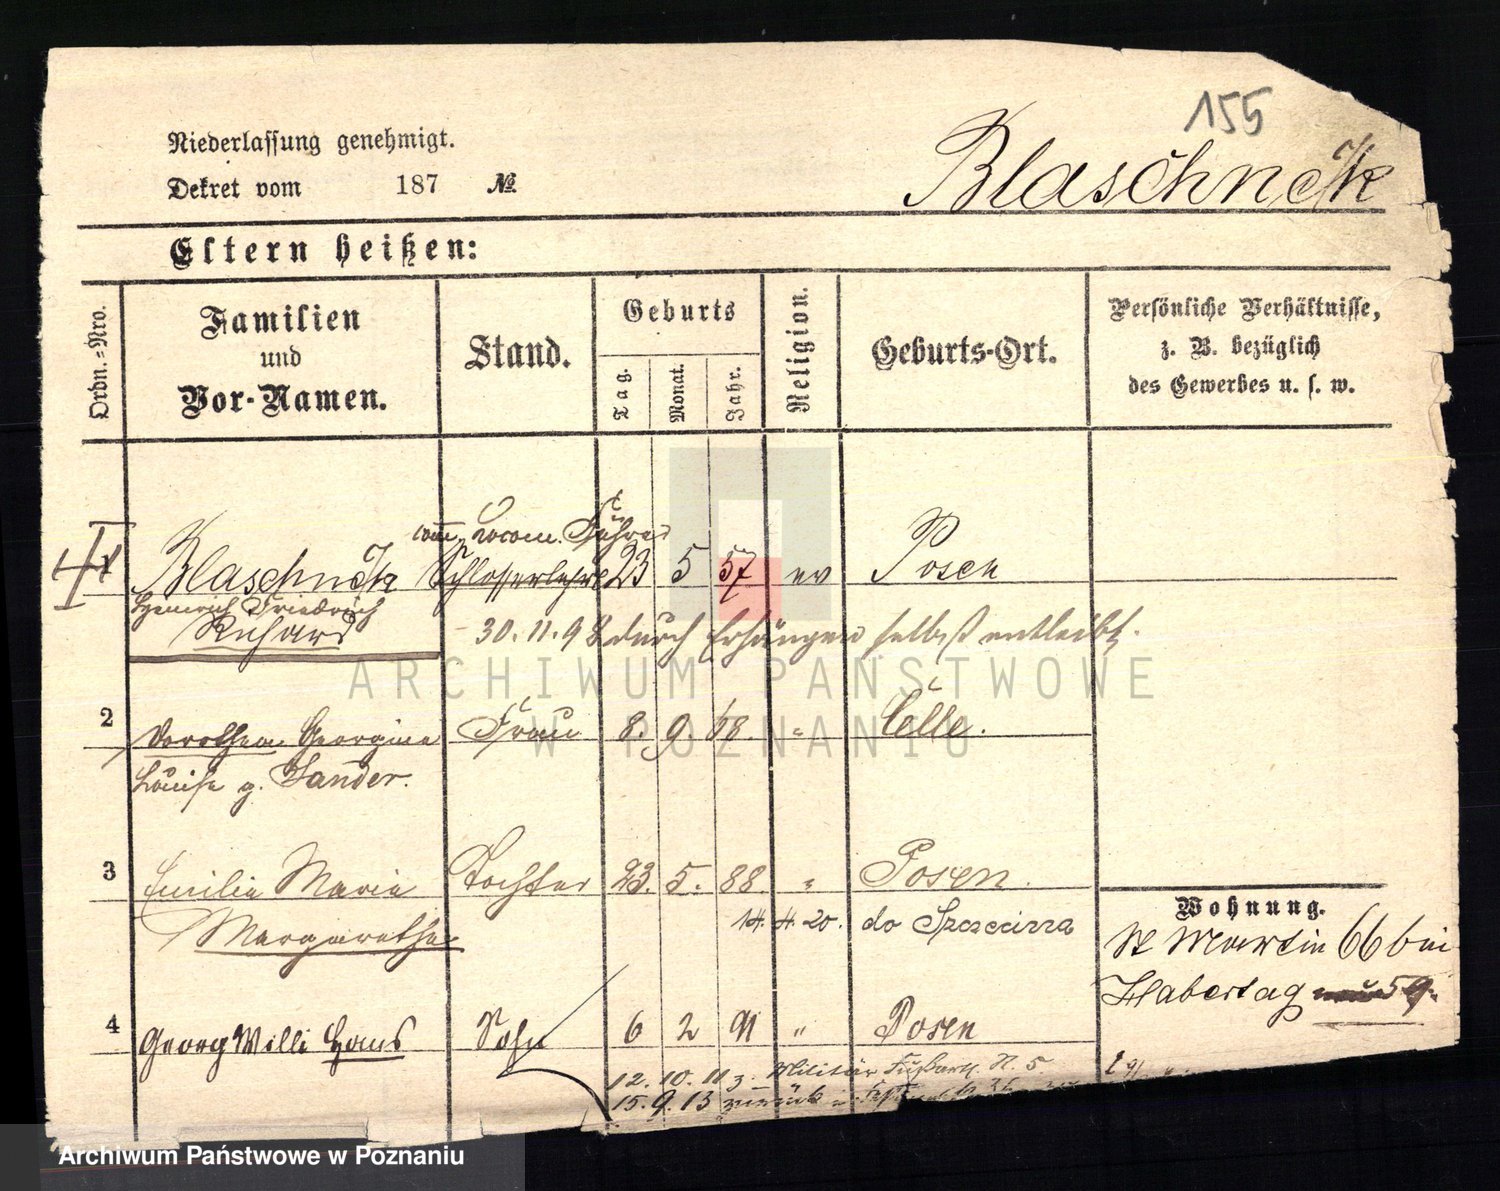 155
Niederlassung genehmigt.
Dekret vom 187 №
Blaschnek
Eltern heißen:
Ordn.-Nro.
Familien und Vor-Namen.
Stand.
Geburts
Tag.
Monat.
Jahr.
Religion.
Geburts-Ort.
Persönliche Verhältnisse,
z. B. bezüglich
des Gewerbes u. s. w.
Locom. Führer
Blaschnek Schlosserlehrl 23 5 57 ev Posen
Heinrich Friedrich
Richard
30. 11. 98 durch Erhängen selbst entleibt.
2 Dorothea Georgine Frau 8. 9. 68. " Celle.
Louise g. Sander.
3 Emilie Marie Tochter 23. 5. 88. " Posen.
Margarethe 14. 4. 20. do Szczecina
Wohnung.
St Martin 66 bei
Habertag 59.
4 Georg Willi Hans Sohn 6 2 91 " Posen
12. 10. 11 z. Militär Fußart. R. 5.
15. 9. 13 zurück
ARCHIWUM PAŃSTWOWE
W POZNANIU
Archiwum Państwowe w Poznaniu